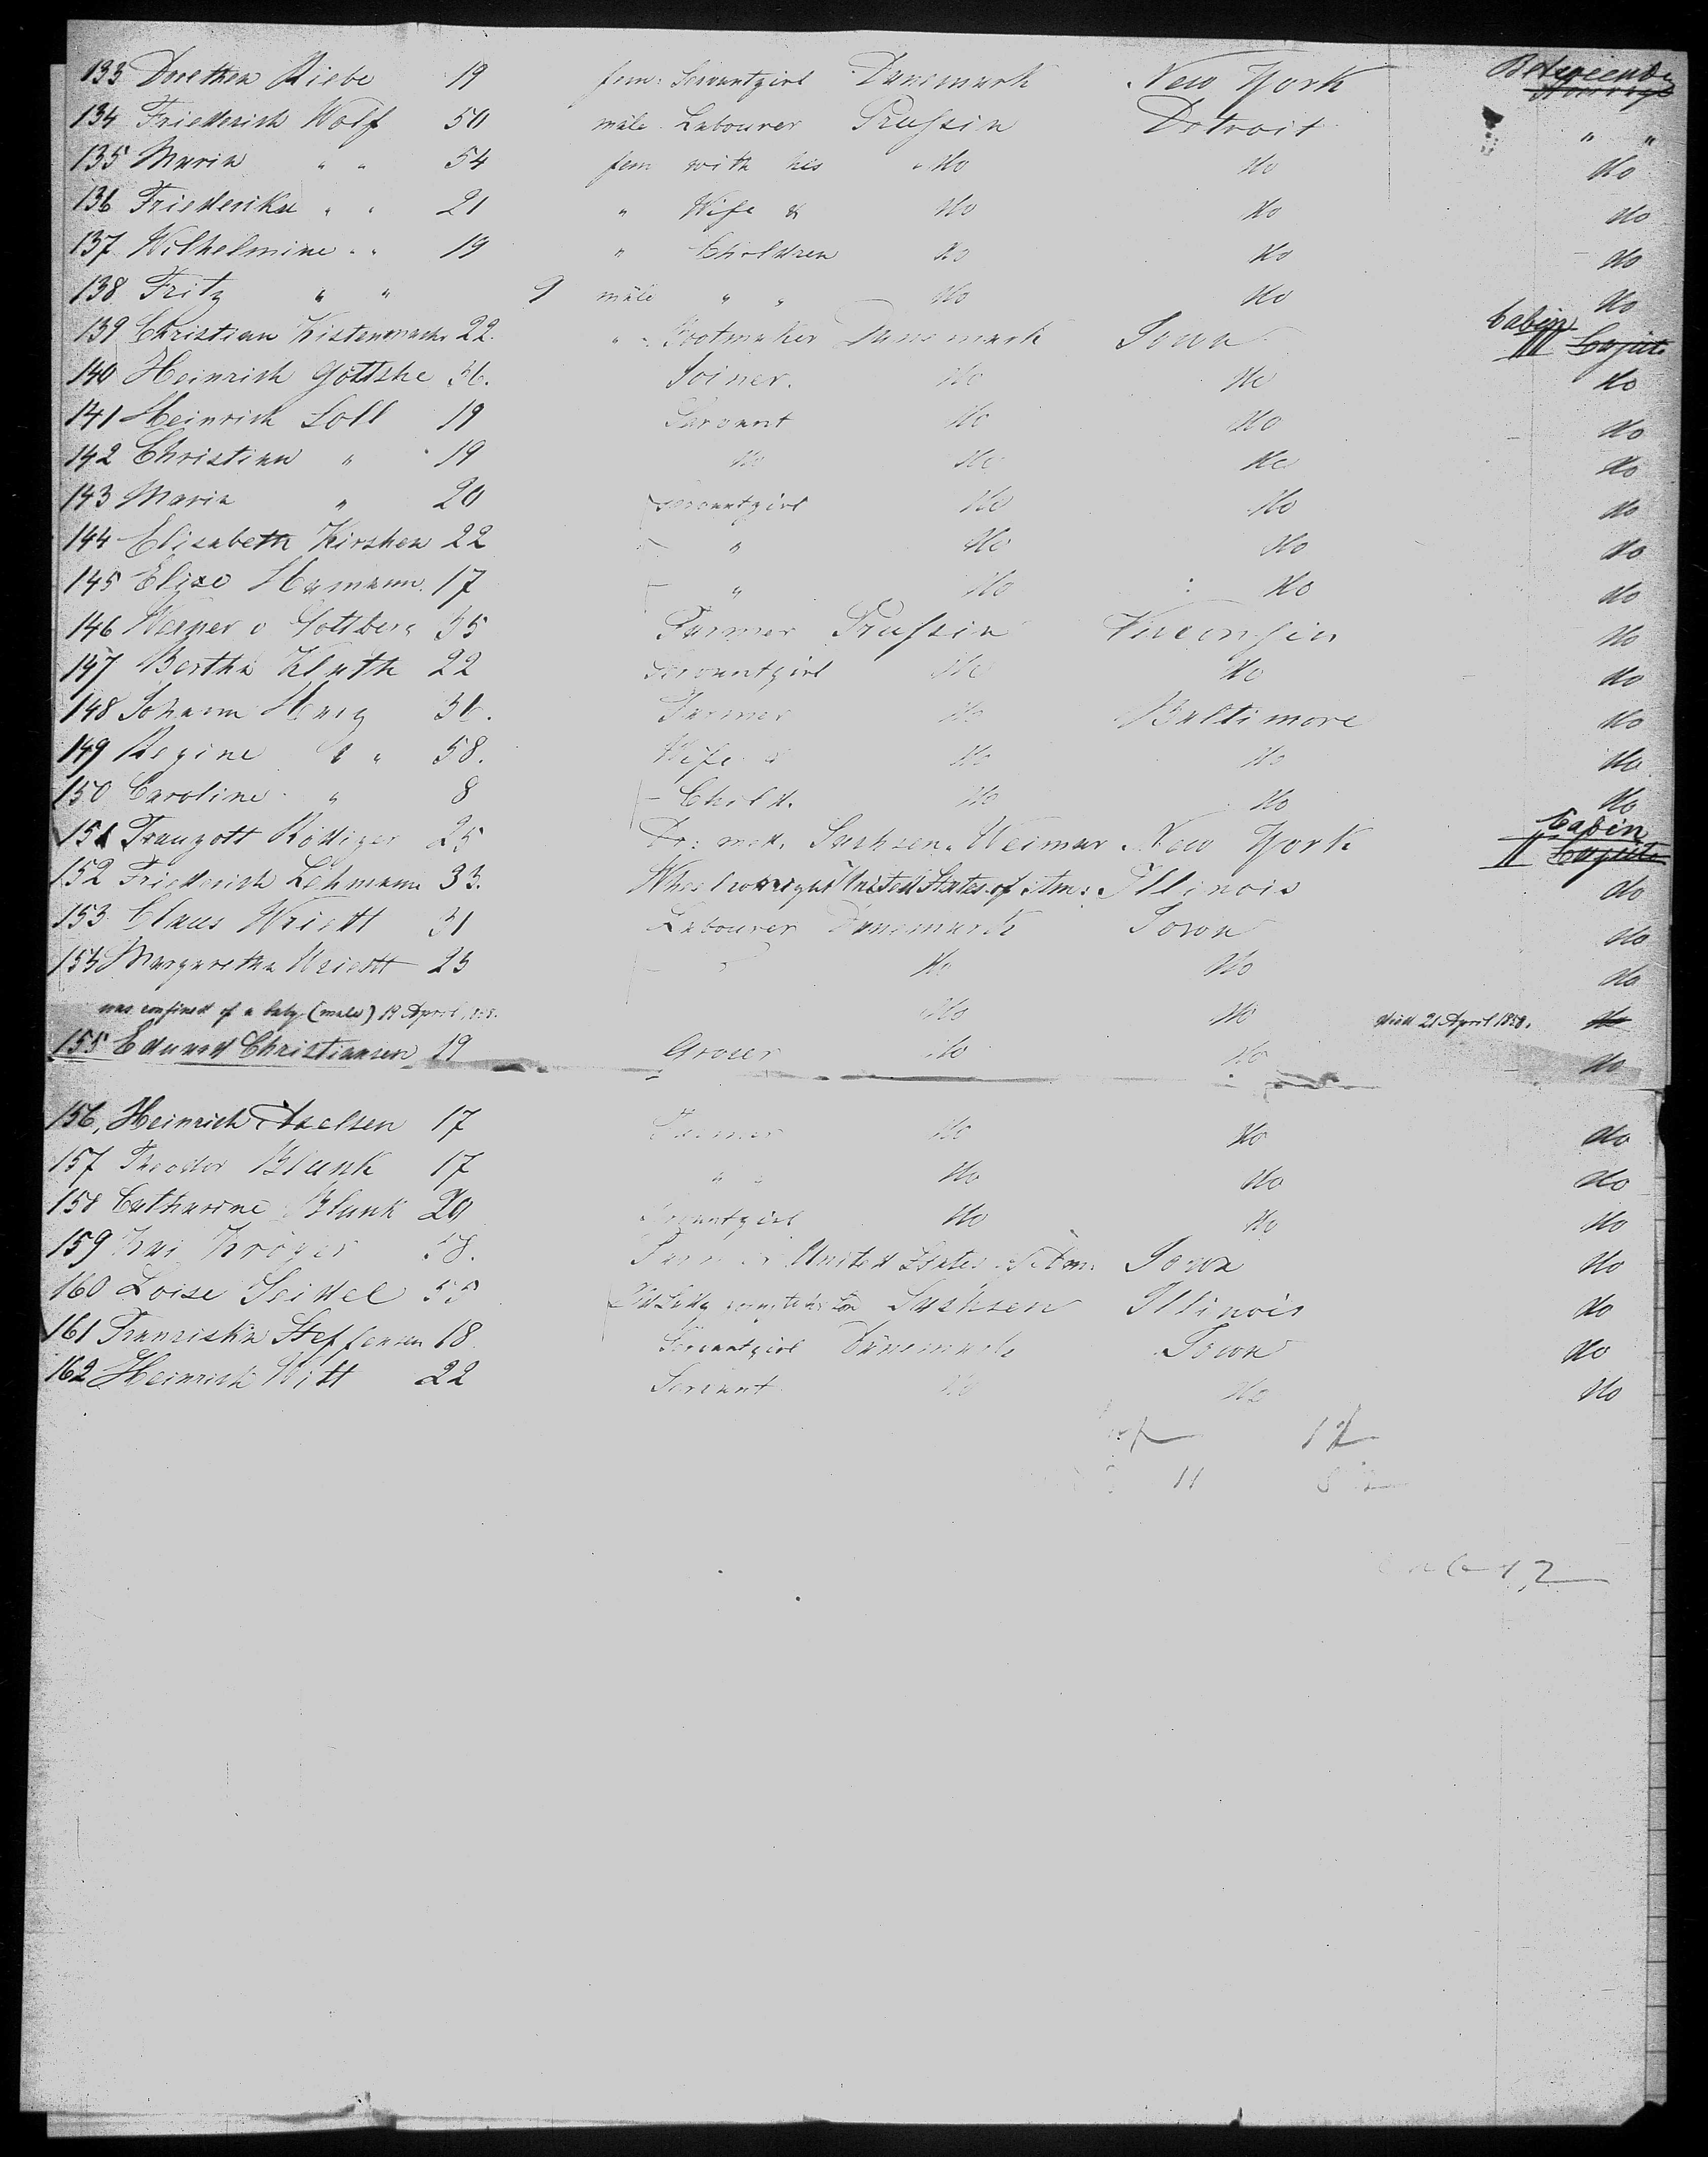 133 Dorethea Riebe 19 fem: Servantgirl Danemark New York Betweendk
134 Friederich Wolf 50 male Labourer Prussia Detroit " "
135 Maria " " 54 fem with his do do do
136 Friederika " " 21 " Wife & do do do
137 Wilhelmine " " 19 " Children do do do
138 Fritz " " 9 male " " do do do
139 Christian Kistenmacher 22. " Bootmaker Danemark Iowa Cabin II Cajüte
140 Heinrich Göttshe 36. Joiner. do do do
141 Heinrich Soll 19 Servant do do do
142 Christian " 19 do do do do
143 Maria " 20 Servantgirl do do do
144 Elisabeth Kirshen 22 " do do do
145 Elise Hamann. 17 " do do do
146 Werner v Gottberg 35 Farmer Prussia Visconsin do
147 Bertha Kluth 22 Servantgirl do do do
148 Johann 36. Farmer do Baltimore do
149 Regine " " 58. Wife & do do do
150 Caroline " 8 Child. do do do
151 Traugott Rödiger 25 Dr: med. Sachsen. Weimar New York Cabin II Cajüte
152 Friederich Lehmann 33. Wheelwright United States of Am: Illinois do
153 Claus Wriedt 31 Labourer Danemark Iowa do
154 Margaretha Wriedt 25 do do do
was confined of a baby (male) 19 April, 1858. do do died 21 April 1858. do
155 Eduard Christiansen 19 Grocer do do do
156, Heinrich Axelsen 17 Farmer do do do
157 Theodor Blunk 17 " " do do do
158 Catharine Blunk 20 Servantgirl do do do
159 Kröger 58. Farmer United States of Am: Iowa do
160 Loise Seidel 55 Sachsen Illinois do
161 Franziska Steffensen 18 Servantgirl Danemark Iowa do
162 Heinrich Witt 22 Servant do do do
11